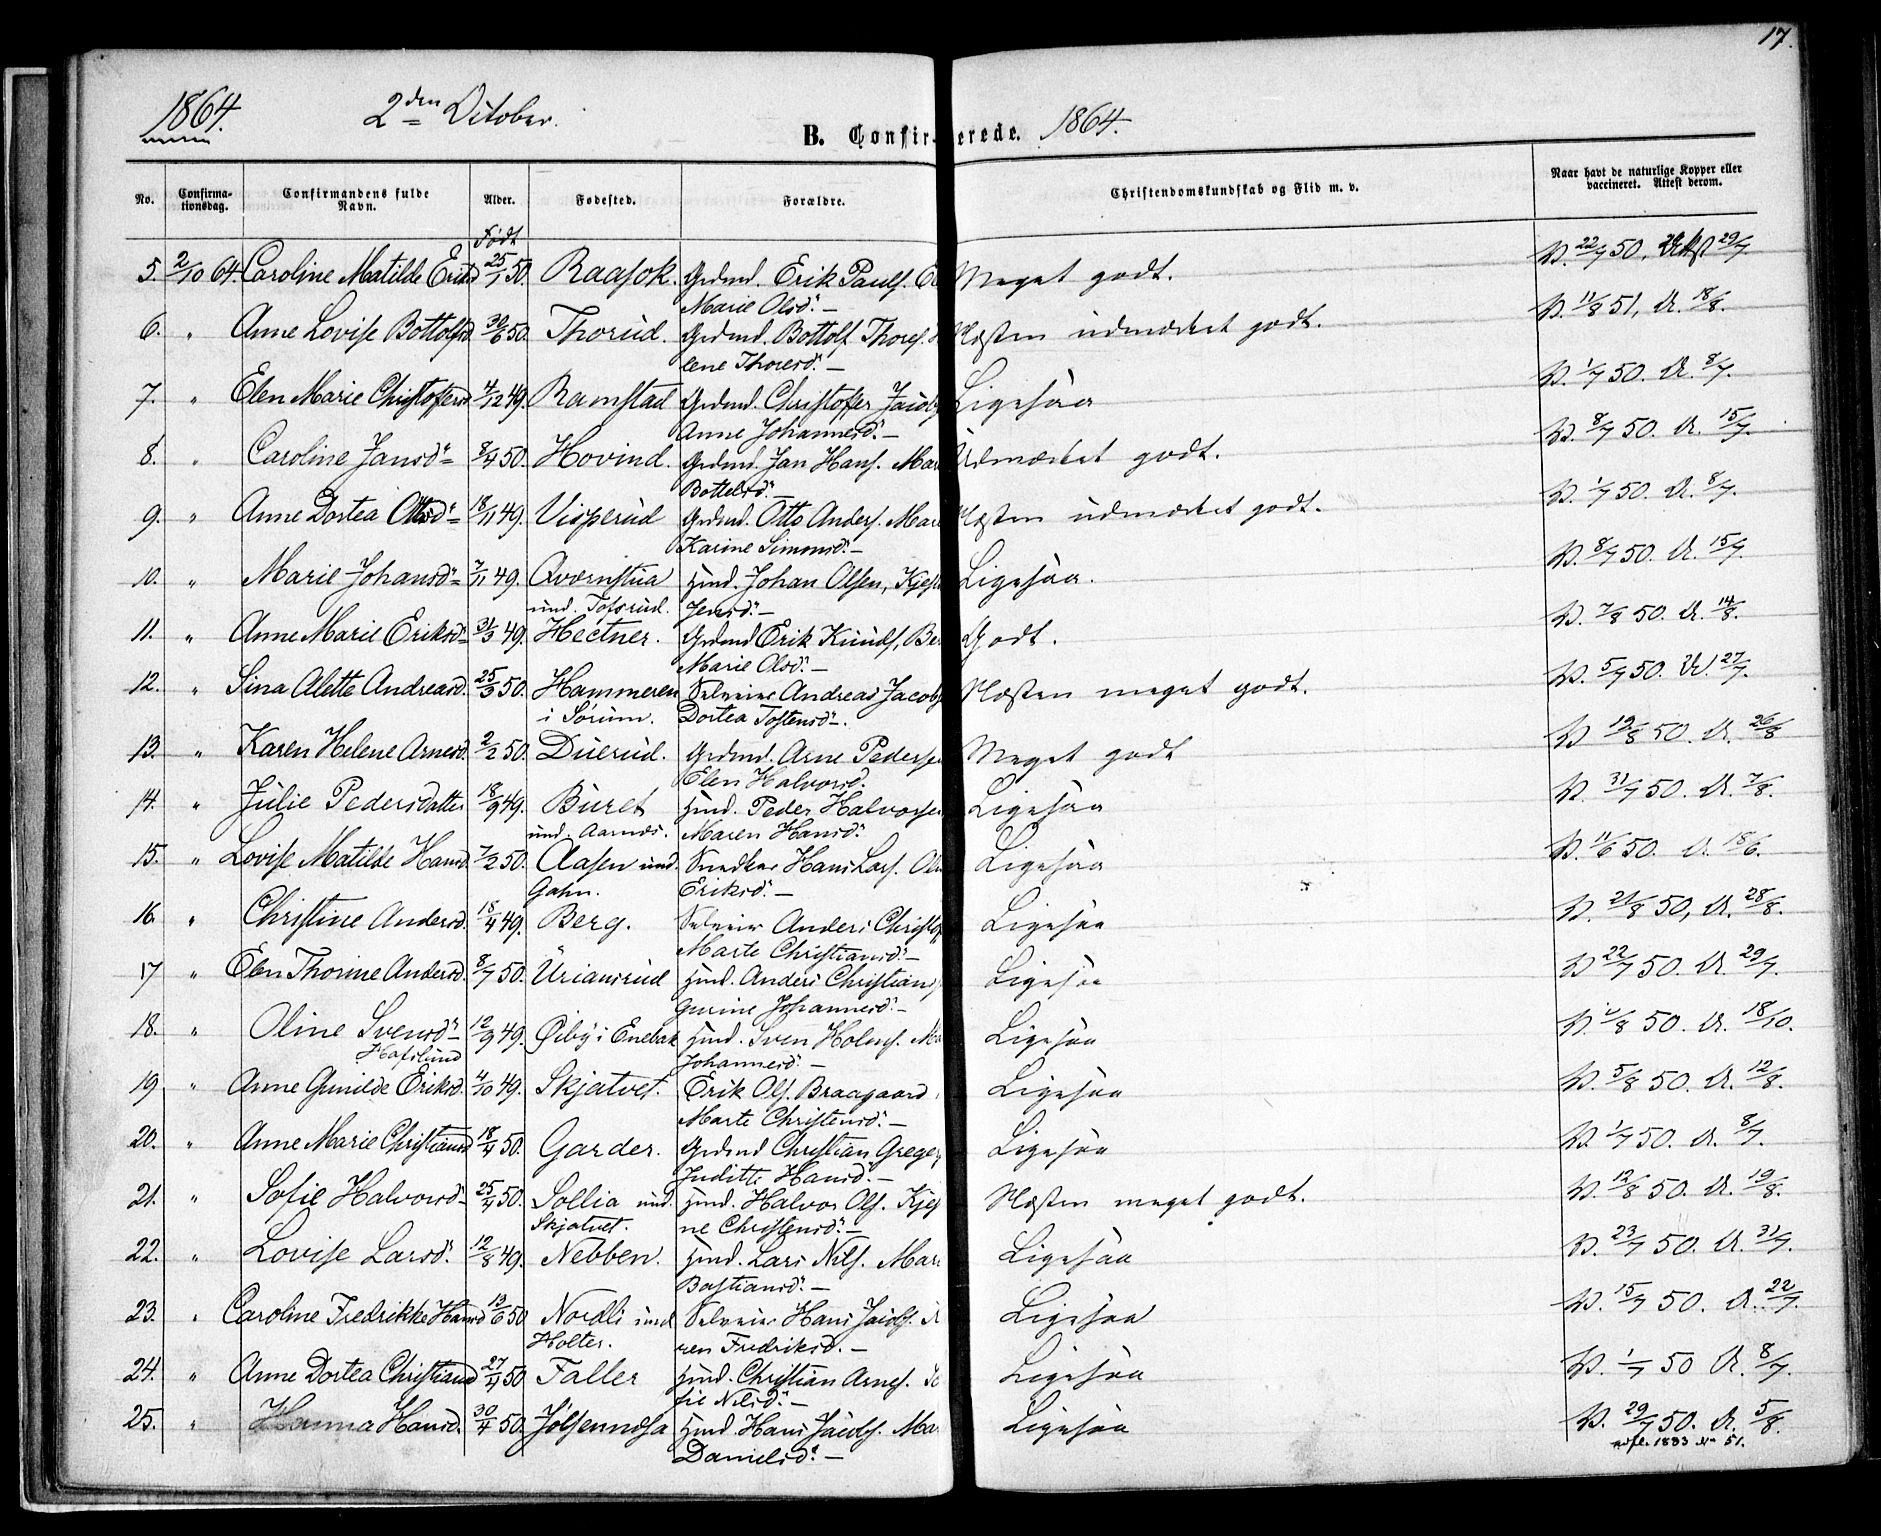 17.
1864. 2den October. B. Confir- erede. 1864.
No. Confirma-tionsdag. Confirmandens fulde Navn. Alder. Fødested. Forældre. Christendomskundskab og Flid m. v. Naar havt de naturlige Kopper eller vaccineret. Attest derom.
Født
5. 2/10 64. Caroline Matilde Eriksd 25/1 50. Raasok. Grdmd. Erik Pauls. Meget godt. V. 22/7 50, 29/7
Marie Olsd. —
6. " Anne Lovise Bottolfsd. 30/6 50. Thorud. Grdmd. Bottolf Thores. Næsten udmærket godt. V. 11/8 51, A. 18/8.
lene Thoresd. —
7. " Elen Marie Christoffersd 4/12 49. Ramstad Grdmd. Christoffer Jacobs Ligesaa V. 1/7 50. A. 8/7.
Anne Johannesd. —
8. " Caroline Jansd 8/4 50. Hovind. Grdmd. Jan Hans. Mar Udmærket godt. V. 8/7 50. A. 15/7.
Bottelsd. —
9. " Anne Dortea Ottosd 18/11 49. Visperud Grdmd. Otto Anders. Mar Næsten udmærket godt. V. 1/7 50. A. 8/7.
Karine Simonsd. —
10. " Marie Johansd 7/11 49. Qværnstua Hmd. Johan Olsen, Kjes Ligesaa. V. 8/7 50. A. 15/7.
und. Tofsrud. Jensd. —
11. " Anne Marie Eriksd 31/3 49. Hectner. Grdmd Erik Knuds, Be Godt. V. 7/8 50. A. 14/8.
Marie Olsd. —
12. " Sina Alette Andreasd. 25/3 50. Hammeren Selveier Andreas Jacobs Næsten meget godt. V. 5/7 50. A. 27/7.
i Sørum. Dortea Tostensd —.
13. " Karen Helene Arnesd. 2/2 50. Duerud. Grdmd. Arne Peders Meget godt V. 19/8 50. A. 26/8
Elen Halvorsd.
14. " Julie Pedersdatter 18/9 49. Buret Hmd. Peder Halvorsen Ligesaa V. 31/7 50. A. 7/8.
und. Aarnes. Maren Hansd.
15. " Lovise Matilde Hansd. 7/2 50. Aasen und. Snedker Hans Lars. Ligesaa V. 11/6 50. A. 18/6.
Gahn. Eriksd. —
16. " Christine Andersd. 18/4 49. Berg. Selveier Anders Christof Ligesaa V. 21/8 50, A. 28/8.
Marte Christiansd. —
17 " Elen Thorine Andersd. 8/7 50. Uriansrud Hmd. Anders Christians Ligesaa V. 22/7 50. A. 29/7.
Gurine Johannesd. —
18. " Oline Svensd 12/9 49. Øiby i Enebak Hmd. Sven Holms. Ma Ligesaa 8 50. A. 18/10.
Hafslund Johannesd. —
19 " Anne Gunilde Eriksd. 4/10 49. Skjatvet. Erik Ols. Braagaard Ligesaa V. 5/8 50. A. 12/8.
Marte Christensd. —
20. " Anne Marie Christiansd 18/4 50. Garder. Grdmd Christian Greger Ligesaa V. 1/7 50. A. 8/7.
Juditte Hansd. —
21. " Sofie Halvorsd 25/4 50. Sollia und. Hmd. Halvor Ols. Kjes Næsten meget godt. V. 12/8 50. A. 19/8.
Skjatvet. ne Christensd. —
22. " Lovise Larsd. 12/8 49. Nebben. Hmd. Lars Nils. Mar Ligesaa V. 23/7 50. A. 31/7.
Bastiansd. —
23. " Caroline Fredrikke Hansd 13/6 50 Nordli und Selveier Hans Jacobs. Ligesaa V. 15/7 50. A. 22/7.
Holter. ren Fredriksd. —
24. " Anne Dortea Christiansd 27/4 50 Faller Hmd. Christian Arnes. So Ligesaa V. 1/7 50 A. 8/7.
fie Nilsd. —
25. " Hanna Hansd. 30/4 50. Jølsenndsa Hmd. Hans Jacobs. Mar Ligesaa V. 29/7 50. A. 5/8.
Danielsd. — 1883 No 51.